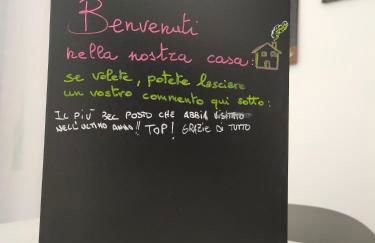 Benvenuti
nella nostra casa:
se volete, potete lasciare
un vostro commento qui sotto:
IL PIÙ BEL POSTO CHE ABBIA VISITATO
NELL'ULTIMO ANNO!! TOP! GRAZIE DI TUTTO